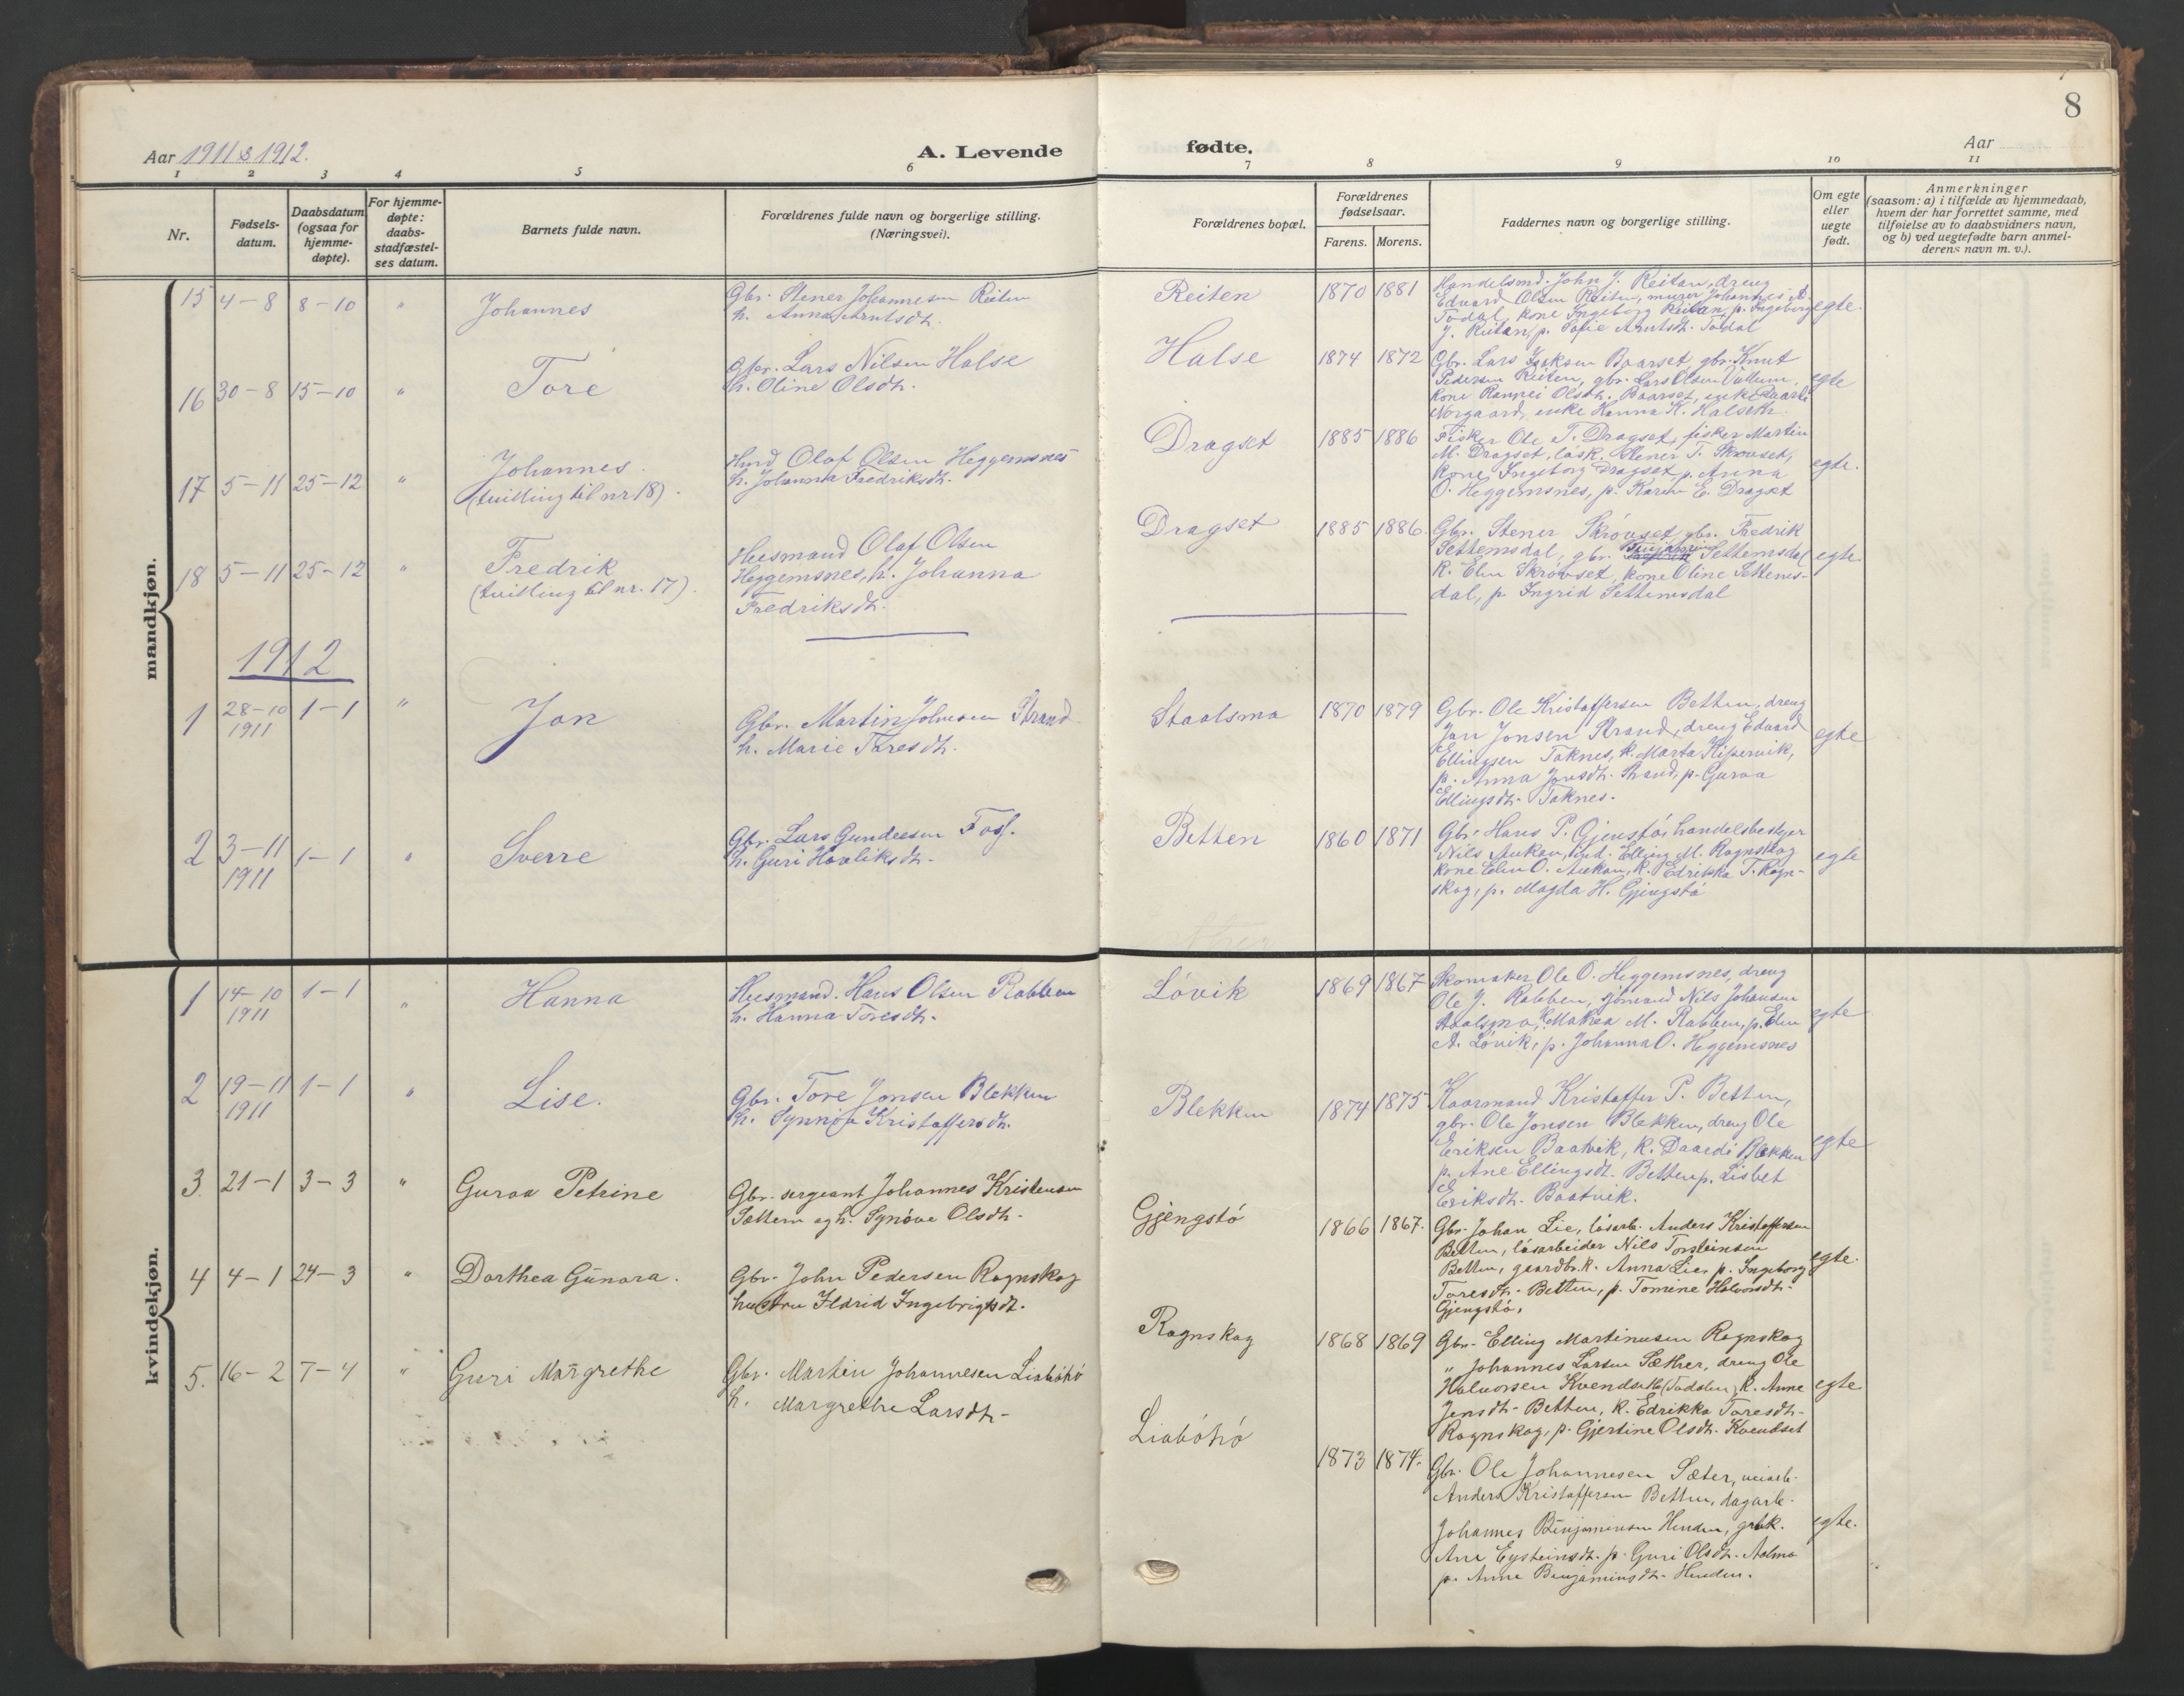 8
Aar 1911 & 1912.
A. Levende
fødte.
Aar
1 2 3 4 5 6 7 8 9 10 11
Nr.
Fødsels-
datum.
Daabsdatum
(ogsaa for
hjemme-
døpte).
For hjemme-
døpte:
daabs-
stadfæstel-
ses datum.
Barnets fulde navn.
Forældrenes fulde navn og borgerlige stilling.
(Næringsvei).
Forældrenes bopæl.
Forældrenes
fødselsaar.
Farens. Morens.
Faddernes navn og borgerlige stilling.
Om egte
eller
uegte
født.
Anmerkninger
(saasom: a) i tilfælde av hjemmedaab,
hvem der har forrettet samme, med
tilføielse av to daabsvidners navn,
og b) ved uegtefødte barn anmel-
derens navn m. v.).
mandkjøn.
15 4-8 8-10 " Johannes
Gbr. Stener Johannesen Reiten
h. Anna Arntsdtr.
Reiten 1870 1881
Handelsmd. John J. Reitan, dreng
Edvard Olsen Reiten, murer Johannes A.
Todal, kone Ingeborg Reitan, p. Ingeborg
J. Reitan, p. Sofie Arntsdt. Todal
egte.
16 30-8 15-10 " Tore
Gbr. Lars Nilsen Halse
h. Oline Olsdtr.
Halse 1874 1872
Gbr. Lars Isaksen Baarset, gbr. Knut
Pedersen Reiten, gbr. Lars Olsen Vullum,
kone Rannei Olsdtr. Baarset, enke Daardi
Norgaard, enke Hanna K. Halseth.
egte
17 5-11 25-12 " Johannes.
(tvilling til nr 18).
Hmd Olaf Olsen Heggemsnes
h. Johanna Fredriksdtr.
Dragset 1885 1886
Fisker Ole T. Dragset, fisker Martin
M. Dragset, løsk. Stener T. Skrøvset,
kone Ingeborg Dragset, p. Anna
O. Heggemsnes, p. Karen E. Dragset
egte.
18 5-11 25-12 " Fredrik
(tvilling til nr. 17).
Husmand Olaf Olsen
Heggemsnes, h. Johanna
Fredriksdtr.
Dragset 1885 1886.
Gbr. Stener Skrøvset, gbr. Fredrik
Settemsdal, gbr. Benjamin Settemsdal
k. Elen Skrøvset, kone Oline Settems-
dal, p. Ingrid Settemsdal
egte.
1912
1 28-10 1911 1-1 " Jon
Gbr. Martin Johnsen Strand
h. Marie Toresdtr.
Staalsmo 1870 1879
Gbr. Ole Kristoffersen Betten, dreng
Jon Jonsen Strand, dreng Edvard
Ellingsen Taknes, k. Marta
p. Anna Jonsdtr. Strand, p. Guroa
Ellingsdtr. Taknes.
egte
2 3-11 1911 1-1 " Sverre
Gbr. Lars Gundersen
h. Guri
Betten 1860 1871
Gbr. Hans P. Gjengstø, handelsbestyrer
Nils Aukan, Elling M. Rognskog
kone Elen O. Aukan, k. Edrikka T. Rogn-
skog, p. Magda H. Gjengstø
egte
kvindekjøn.
1 14-10 1911 1-1 " Hanna
Husmand. Hans Olsen Rabben
h. Hanna Toresdtr.
Løvik 1869 1867
Skomaker Ole O. Heggemsnes, dreng
Ole J. Rabben, sjømand Nils Johansen
Staalsmo, k. Mathea M. Rabben, p. Elen
A. Løvik, p. Johanna O. Heggemsnes
egte
2 19-11 1911 1-1 " Lise.
Gbr. Tore Jonsen Blekken
h. Synnøva Kristoffersdtr.
Blekken 1874 1875
Kaarmand Kristoffer P. Betten,
gbr. Ole Jonsen Blekken, dreng Ole
Eriksen Baatvik, k. Daardi Blekken
p. Ane Ellingsdt. Betten, p. Lisbet
Eriksdtr. Baatvik.
egte
3. 21-1 3-3 " Guroa Petrine
Gbr. sergeant Johannes Kristensen
Sættem og h. Synøve Olsdtr.
Gjengstø 1866 1867.
Gbr. Johan Lie, løsarb. Anders Kristoffersen
Betten, løsarbeider Nils Torsteinsen
Betten, gaardbr.k. Anna Lie, p. Ingeborg
Toresdtr. Betten, p. Tomine Halvorsdtr.
Gjengstø.
egte.
4 4-1 24-3 " Dorthea Gunara.
Gbr. John Pedersen Rognskog
hustru Ildrid Ingebrigtsdt.
Rognskog 1868 1869
Gbr. Elling Martinusen Rognskog
" Johannes Larsen Sæther, dreng Ole
Halvorsen Kvendset (Todalen), k. Anne
Jensdtr. Betten, k. Edrikka Toresdtr.
Rognskog, p. Gjertine Olsdtr. Kvendset
egte
5. 16-2 7-4 " Guri Margrethe
Gbr. Martin Johannesen Liabøhø
h. Margrethe Larsdtr.
Liabøhø 1873 1874.
Gbr. Ole Johannesen Sæter, veiarb.
Anders Kristoffersen Betten, dagarb.
Johannes Benjaminsen Henden, grbk.
Ane Eysteinsdt. p. Guri Olsdtr. Aalmo
p. Anne Benjaminsdtr. Henden.
egte.